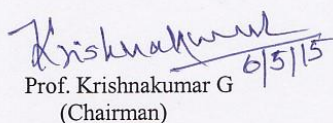 Krishnakumar
6/5/15
Prof. Krishnakumar G
(Chairman)